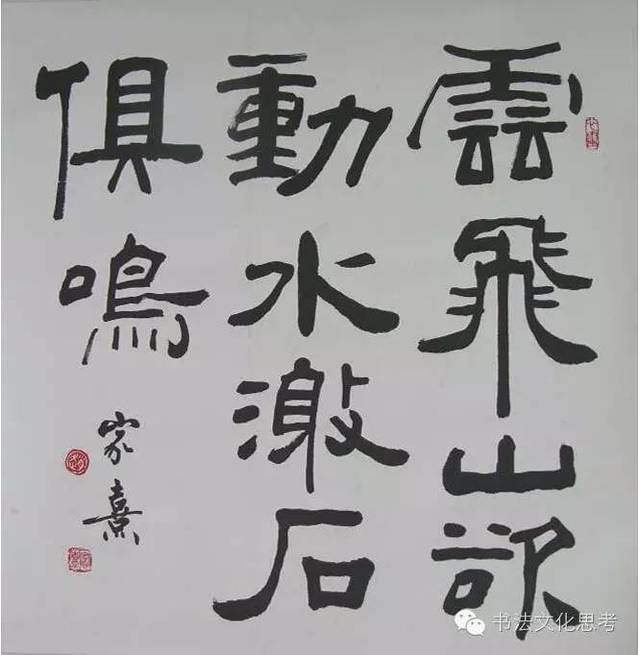 雲飛山欲
動水激石
俱鳴
家熹
书法文化思考